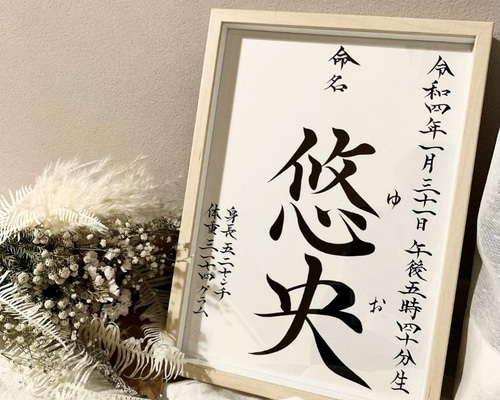 令和四年一月三十一日 午後五時四十分生
命名
ゆ お
悠央
身長 五二センチ
体重 グラム